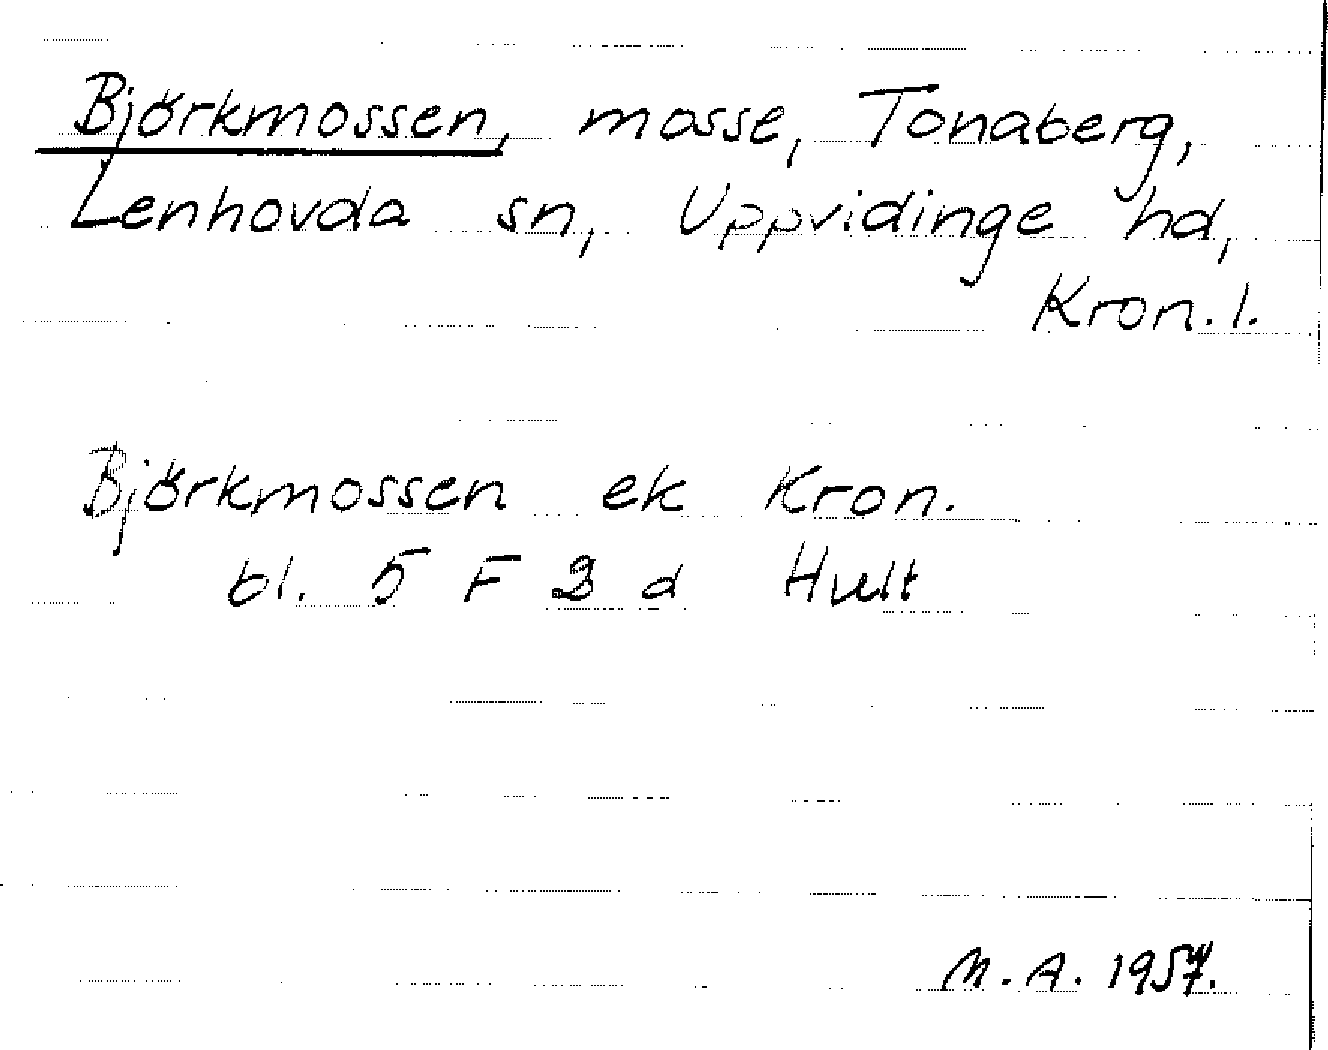 Björkmossen, mosse, Tonaberg,
Lenhovda sn, Uppvidinge hd,
Kron. l.
Björkmossen ek Kron.
bl. 5 F 3 d Hult
M. A. 1957.